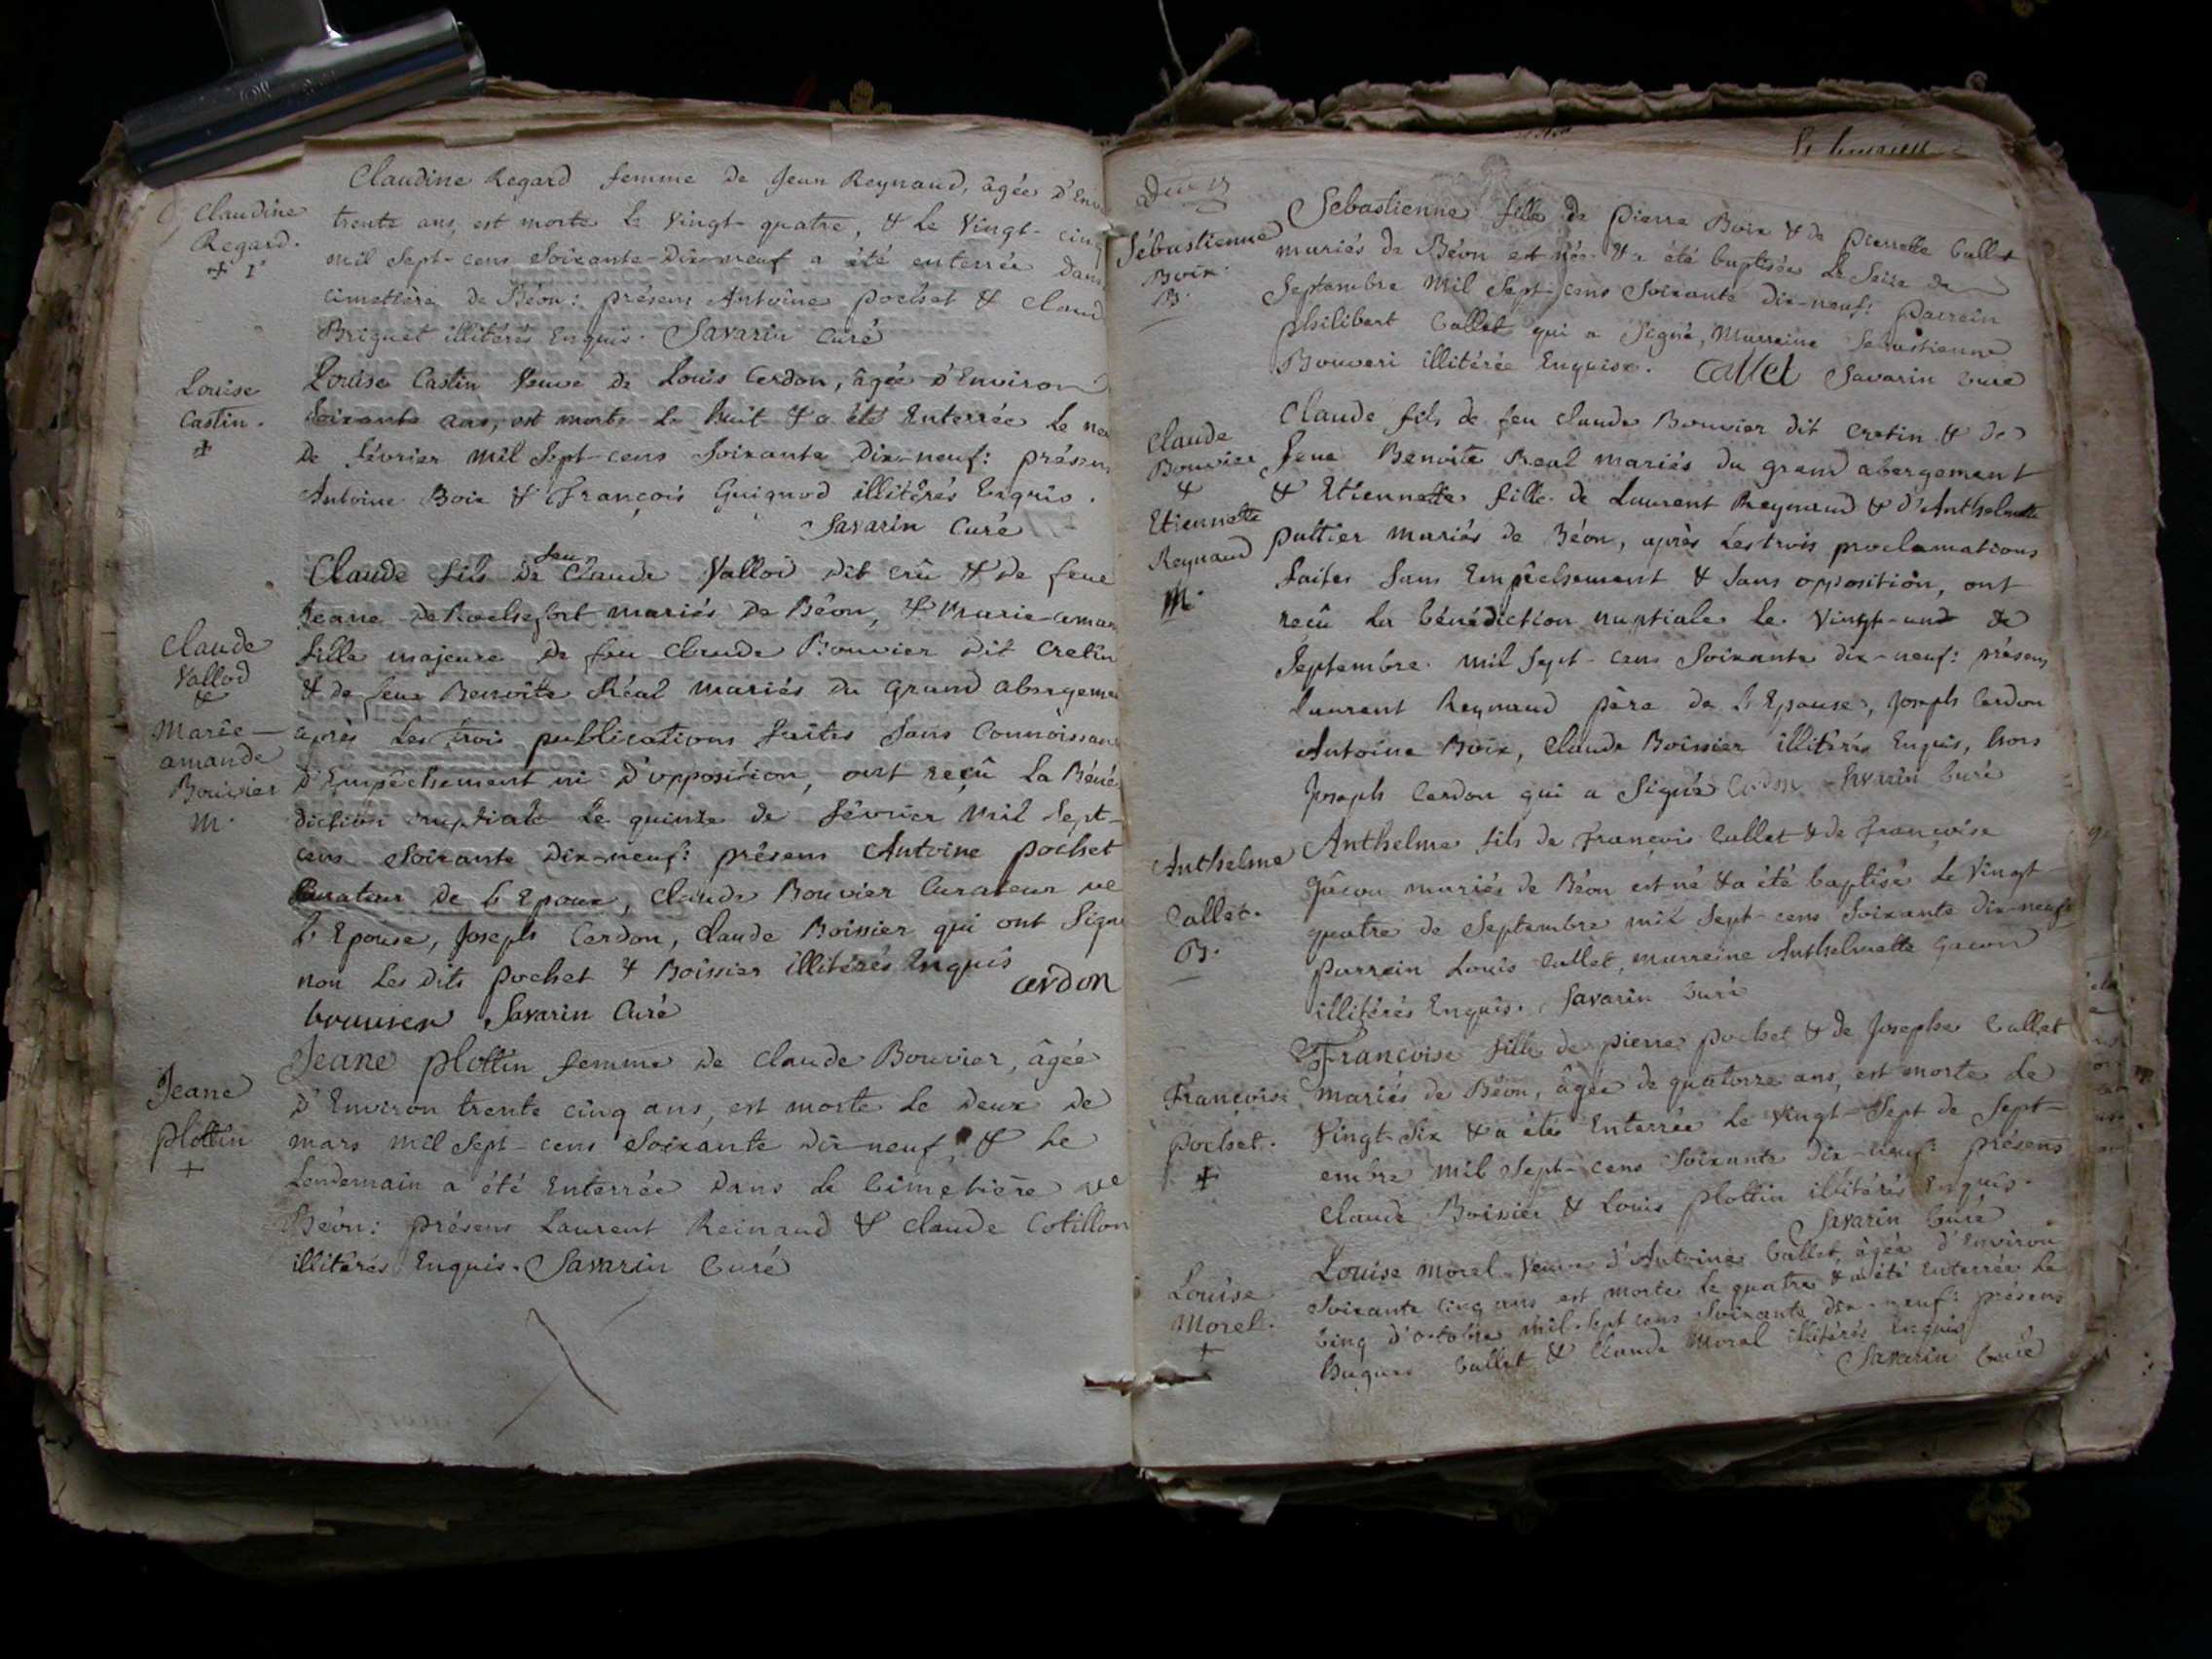 Claudine
Regard.
+ 1
Claudine Regard femme de Jean Reynaud, âgée d'Env
trente ans, est morte le vingt-quatre, & le vingt-cinq
mil sept-cens soixante-dix-neuf a été enterrée dans
cimettière de Béon: présens Antoine pochet & Claud
Briquet illitérés Enquis. Savarin Curé
Louise
Castin.
+
Louise Castin veuve de Louis Cerdon, âgée d'Environ
soixante ans, est morte le huit & a été Enterrée le
de février mil sept-cens soixante dix-neuf: présens
Antoine Boix & François Guignod illitérés Enquis.
Savarin Curé
Claude
Vallod
&
Marie-
amande
Bouvier
m.
Claude fils de feu Claude Vallod dit crû & de feue
Jeane de Rochefort mariés de Béon, & Marie-aman
fille majeure de feu Claude Bouvier dit Cretin
& de feue Benoîte Réal mariés du Grand abergeme
après les trois publications faites sans Connoissan
d'Empêchement ni d'opposition, ont reçû la Béné
diction nuptiale le quinze de février mil sept-
cens soixante dix-neuf: présens Antoine pochet
Curateur de l'Epoux, Claude Bouvier Curateur de
l'Epouse, Joseph Cerdon, Claude Boissier qui ont Signé
non les dits pochet & Boissier illitérés Enquis
cerdon
bouvier Savarin Curé
Jeane
plottin
+
Jeane plottin femme de Claude Bouvier, âgée
d'Environ trente cinq ans, est morte le deux de
mars mil sept-cens soixante dix neuf, & le
Lendemain a été Enterrée dans le Cimetière de
Béon: présens Laurent Reinaud & Claude Cotillon
illitérés Enquis. Savarin Curé
Sébastienne
Boix.
B.
Sebastienne fille de pierre Boix & de pierrette Callet
mariés de Béon est née & a été baptisée le seize de
septembre mil sept-cens soixante dix-neuf: parrein
philibert Callet qui a signé, Marreine Sébastienne
Bouveri illitérée Enquise. Callet Savarin Curé
Claude
Bouvier
&
Etiennette
Reynaud
M.
Claude fils de feu Claude Bouvier dit Cretin & de
feue Benoîte Real mariés du grand abergement
& Etiennette fille de Laurent Reynaud & d'Anthelmette
puttier mariés de Béon, après les trois proclamations
faites sans Empêchement & sans opposition, ont
reçû la bénédiction nuptiale le vingt-und de
septembre mil sept-cens soixante dix-neuf: présens
Laurent Reynaud père de l'Epouse, Joseph Cerdon
Antoine Boix, Claude Boissier illitérés Enquis, hors
Joseph Cerdon qui a signé Cerdon Savarin Curé
Anthelme
Callet.
B.
Anthelme fils de François Callet & de Françoise
Gâcon mariés de Béon est né & a été baptisé le vingt
quatre de septembre mil sept-cens soixante dix-neuf
parrein Louis Callet, marreine Anthelmette Gacon
illitérés Enquis. Savarin Curé
Françoise
pochet.
+
Françoise fille de pierre pochet & de Josephe Callet
mariés de Béon, âgée de quatorze ans, est morte le
vingt-six & a été Enterrée le vingt-sept de sept-
embre mil sept-cens soixante dix-neuf: présens
Claude Boissier & Louis plottin illitérés Enquis.
Savarin Curé
Louise
Morel.
+
Louise Morel veuve d'Antoine Callet, âgée d'Environ
soixante cinq ans est morte le quatre & a été Enterrée le
cinq d'octobre mil sept cens soixante dix-neuf: présens
Hugues Callet & Claude Morel illitérés Enquis
Savarin Curé